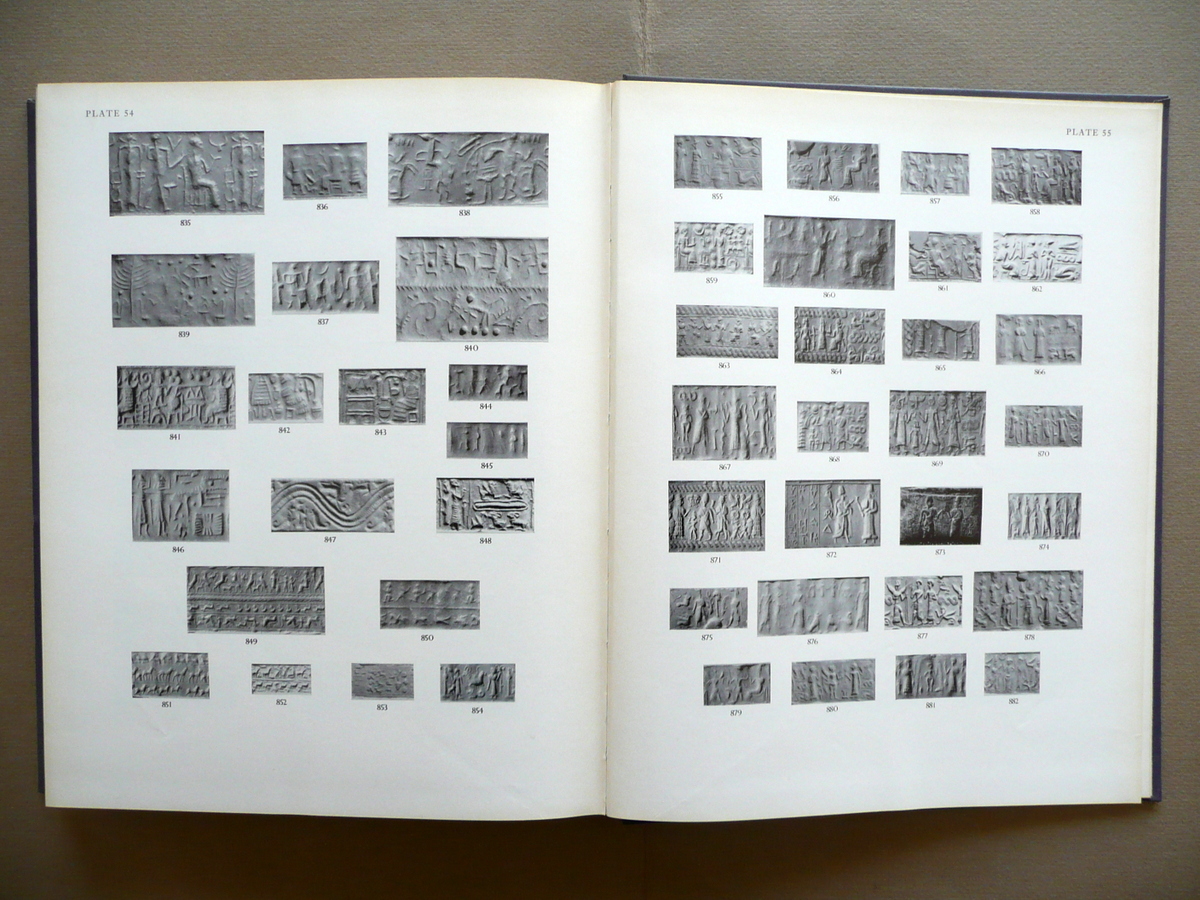 PLATE 54
835
836
838
839
837
840
841
842
843
844
845
846
847
848
849
850
851
852
853
854
PLATE 55
855
856
857
858
859
860
861
862
863
864
865
866
867
868
869
870
871
872
873
874
875
876
877
878
879
880
881
882